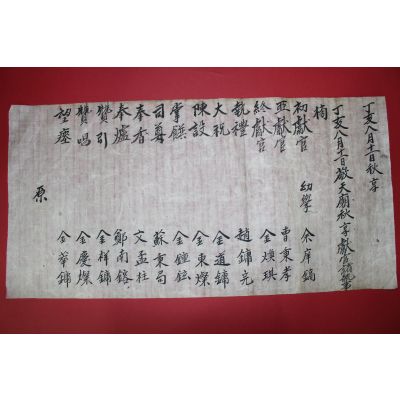 丁亥八月十一日秋享
丁亥八月十一日敬天廟秋享獻官諸執事
初獻官 幼學 余岸鎬
亞獻官 曺秉孝
終獻官 金煥琪
執禮 趙鏞完
大祝 金道鏞
陳設 金東燦
掌饌 金鍾鉉
司尊 蘇秉局
奉香 文孟柱
奉爐 鄭南鎔
贊引 金祥鏞
贊唱 金慶燦
望瘞 金華鏞
原